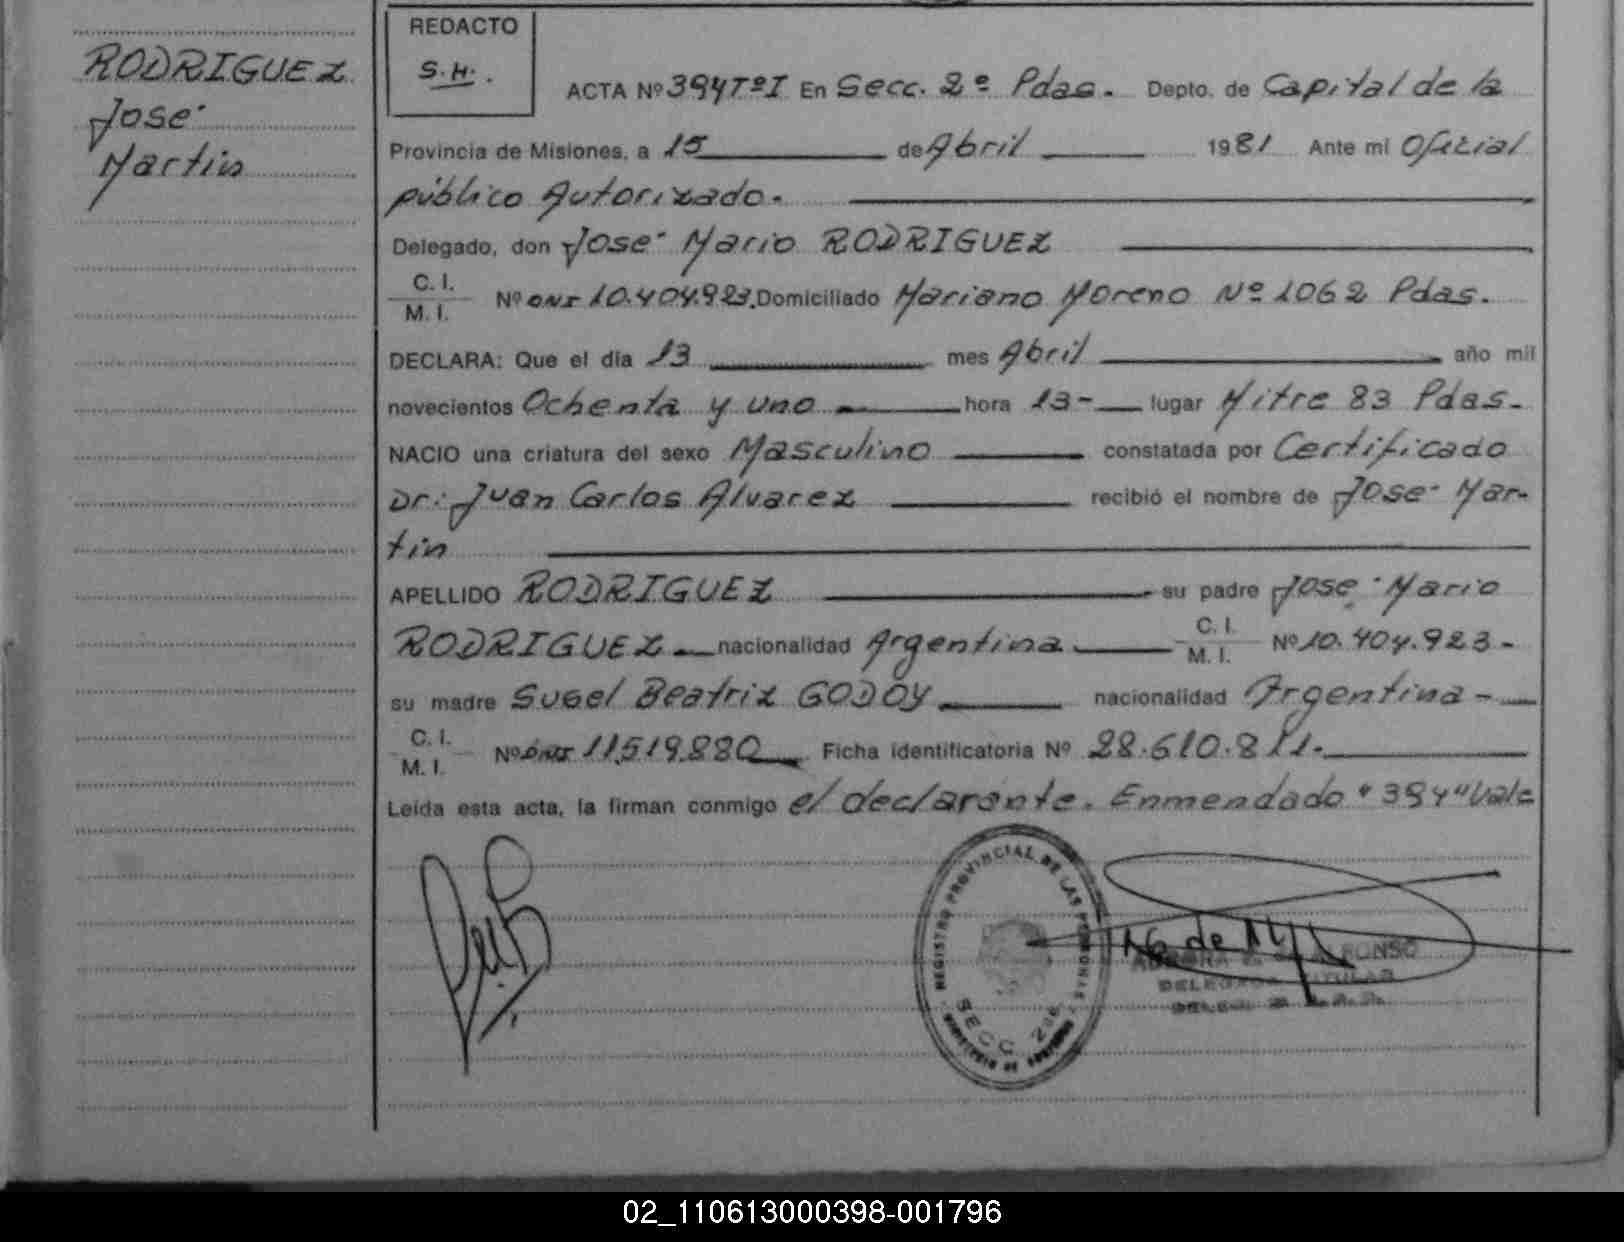 RODRIGUEZ
Jose
Martin
REDACTO
S.H.
ACTA Nº 394 TºI En Secc. 2º Pdas. Depto. de Capital de la
Provincia de Misiones, a 15 de Abril 1981 Ante mi Oficial
público Autorizado.
Delegado, don Jose Mario RODRIGUEZ
C. I.
M. I. Nº DNI 10.404.923. Domiciliado Mariano Moreno Nº 1062 Pdas.
DECLARA: Que el día 13 mes Abril año mil
novecientos Ochenta y uno hora 13- lugar Mitre 83 Pdas.
NACIO una criatura del sexo Masculino constatada por Certificado
Dr: Juan Carlos Alvarez recibió el nombre de Jose Mar-
tin
APELLIDO RODRIGUEZ su padre Jose Mario
RODRIGUEZ nacionalidad Argentina C. I.
M. I. Nº 10.404.923-
su madre Sugel Beatriz GODOY nacionalidad Argentina-
C. I.
M. I. Nº DNI 11.519.880 Ficha identificatoria Nº 28.610.811.
Leída esta acta, la firman conmigo el declarante. Enmendado "394" Vale
REGISTRO PROVINCIAL DE LAS PERSONAS
SECC 2da
ALFONSO
TITULAR
02_110613000398-001796